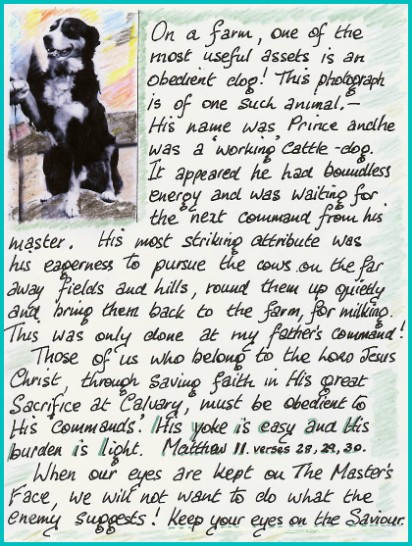 On a farm, one of the
most useful assets is an
obedient dog! This photograph
is of one such animal.—
His name was Prince and he
was a 'working' cattle-dog.
It appeared he had boundless
energy and was waiting for
the next command from his
master. His most striking attribute was
his eagerness to pursue the cows on the far
away fields and hills, round them up quietly
and bring them back to the farm, for milking.
This was only done at my father's command!
Those of us who belong to the Lord Jesus
Christ, through saving faith in His great
Sacrifice at Calvary, must be obedient to
His commands! His yoke is easy and His
burden is light. Matthew 11. verses 28, 29, 30.
When our eyes are kept on The Master's
Face, we will not want to do what the
enemy suggests! Keep your eyes on the Saviour.